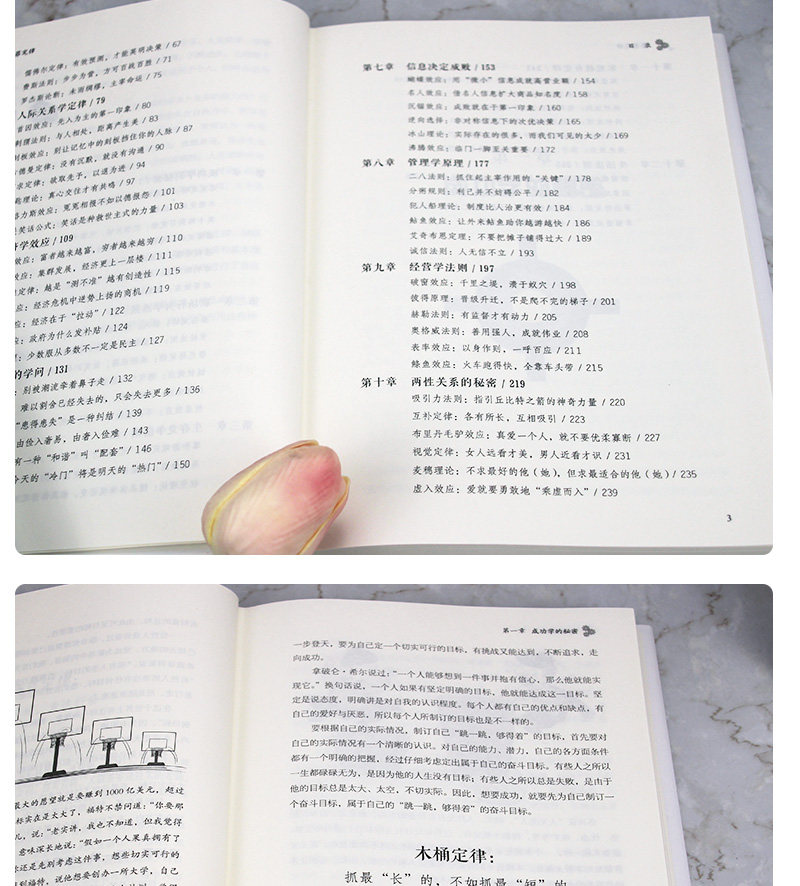 儒佛尔定律：有效预测，才能英明决策 / 67
费斯法则：步步为营，方可百战百胜 / 71
罗杰斯论断：未雨绸缪，主宰命运 / 75
人际关系学定律 / 79
首因效应：先入为主的第一印象 / 80
刺猬法则：与人相处，距离产生美 / 83
刻板效应：别让记忆中的刻板挡住你的人脉 / 87
德曼定律：没有沉默，就没有沟通 / 90
求定律：欲取先予，以退为进 / 94
理论：真心交往才有共鸣 / 97
格力斯效应：冤冤相报不如以德报怨 / 101
笑话公式：笑话是种救世主式的力量 / 103
济学效应 / 109
效应：富者越来越富，穷者越来越穷 / 110
应：集群发展，经济更上一层楼 / 111
定律：越是“测不准”越有创造性 / 115
应：经济危机中逆势上扬的商机 / 119
应：经济在于“拉动” / 122
应：政府为什么发补贴 / 124
：少数服从多数不一定是民主 / 127
的学问 / 131
：别被潮流牵着鼻子走 / 132
难以割舍已经失去的，只会失去更多 / 136
“患得患失”是一种纠结 / 139
由俭入奢易，由奢入俭难 / 143
有一种“和谐”叫“配套” / 146
今天的“冷门”将是明天的“热门” / 150
目 录
第七章 信息决定成败 / 153
蝴蝶效应：用“微小”信息成就高营业额 / 154
名人效应：借名人信息扩大商品知名度 / 158
沉锚效应：成败就在于第一印象 / 160
逆向选择：非对称信息下的次优决策 / 165
冰山理论：实际存在的很多，而我们可见的太少 / 169
沸腾效应：临门一脚至关重要 / 172
第八章 管理学原理 / 177
二八法则：抓住起主宰作用的“关键” / 178
分粥规则：利己并不妨碍公平 / 182
犯人船理论：制度比人治更有效 / 184
鲇鱼效应：让外来鲇鱼助你越游越快 / 186
艾奇布恩定理：不要把摊子铺得过大 / 189
诚信法则：人无信不立 / 193
第九章 经营学法则 / 197
破窗效应：千里之堤，溃于蚁穴 / 198
彼得原理：晋级升迁，不是爬不完的梯子 / 201
赫勒法则：有监督才有动力 / 205
奥格威法则：善用强人，成就伟业 / 208
表率效应：以身作则，一呼百应 / 211
鲦鱼效应：火车跑得快，全靠车头带 / 215
第十章 两性关系的秘密 / 219
吸引力法则：指引丘比特之箭的神奇力量 / 220
互补定律：各有所长，互相吸引 / 223
布里丹毛驴效应：真爱一个人，就不要优柔寡断 / 227
视觉定律：女人远看才美，男人近看才识 / 231
麦穗理论：不求最好的他（她），但求最适合的他（她）/ 235
虚入效应：爱就要勇敢地“乘虚而入” / 239
3
最大的愿望就是要赚到1000亿美元，超过
标实在是太大了，福特不禁问道：“你要那
儿，说：“老实讲，我也不知道，但我觉得
意味深长地说：“假如一个人果真拥有了
还是先别考虑这件事，想些切实可行的
福特，说他想创办一所大学，自己
第一章 成功学的秘密
一步登天，要为自己定一个切实可行的目标，有挑战又能达到，不断追求，走
向成功。
拿破仑·希尔说过：“一个人能够想到一件事并抱有信心，那么他就能实
现它。”换句话说，一个人如果有坚定明确的目标，他就能达成这一目标。坚
定是说态度，明确讲是对自我的认识程度。每个人都有自己的优点和缺点，有
自己的爱好与厌恶，所以每个人所制订的目标也是不一样的。
要根据自己的实际情况，制订自己“跳一跳，够得着”的目标，首先要对
自己的实际情况有一个清晰的认识。对自己的能力、潜力，自己的各方面条件
都有一个明确的把握，经过仔细考虑定出属于自己的奋斗目标。有些人之所以
一生都碌碌无为，是因为他的人生没有目标；有些人之所以总是失败，是由于
他的目标总是太大、太空，不切实际。因此，想要成功，就要先为自己制订一
个奋斗目标，属于自己的“跳一跳，够得着”的奋斗目标。
木桶定律：
抓最“长”的，不如抓最“短”的